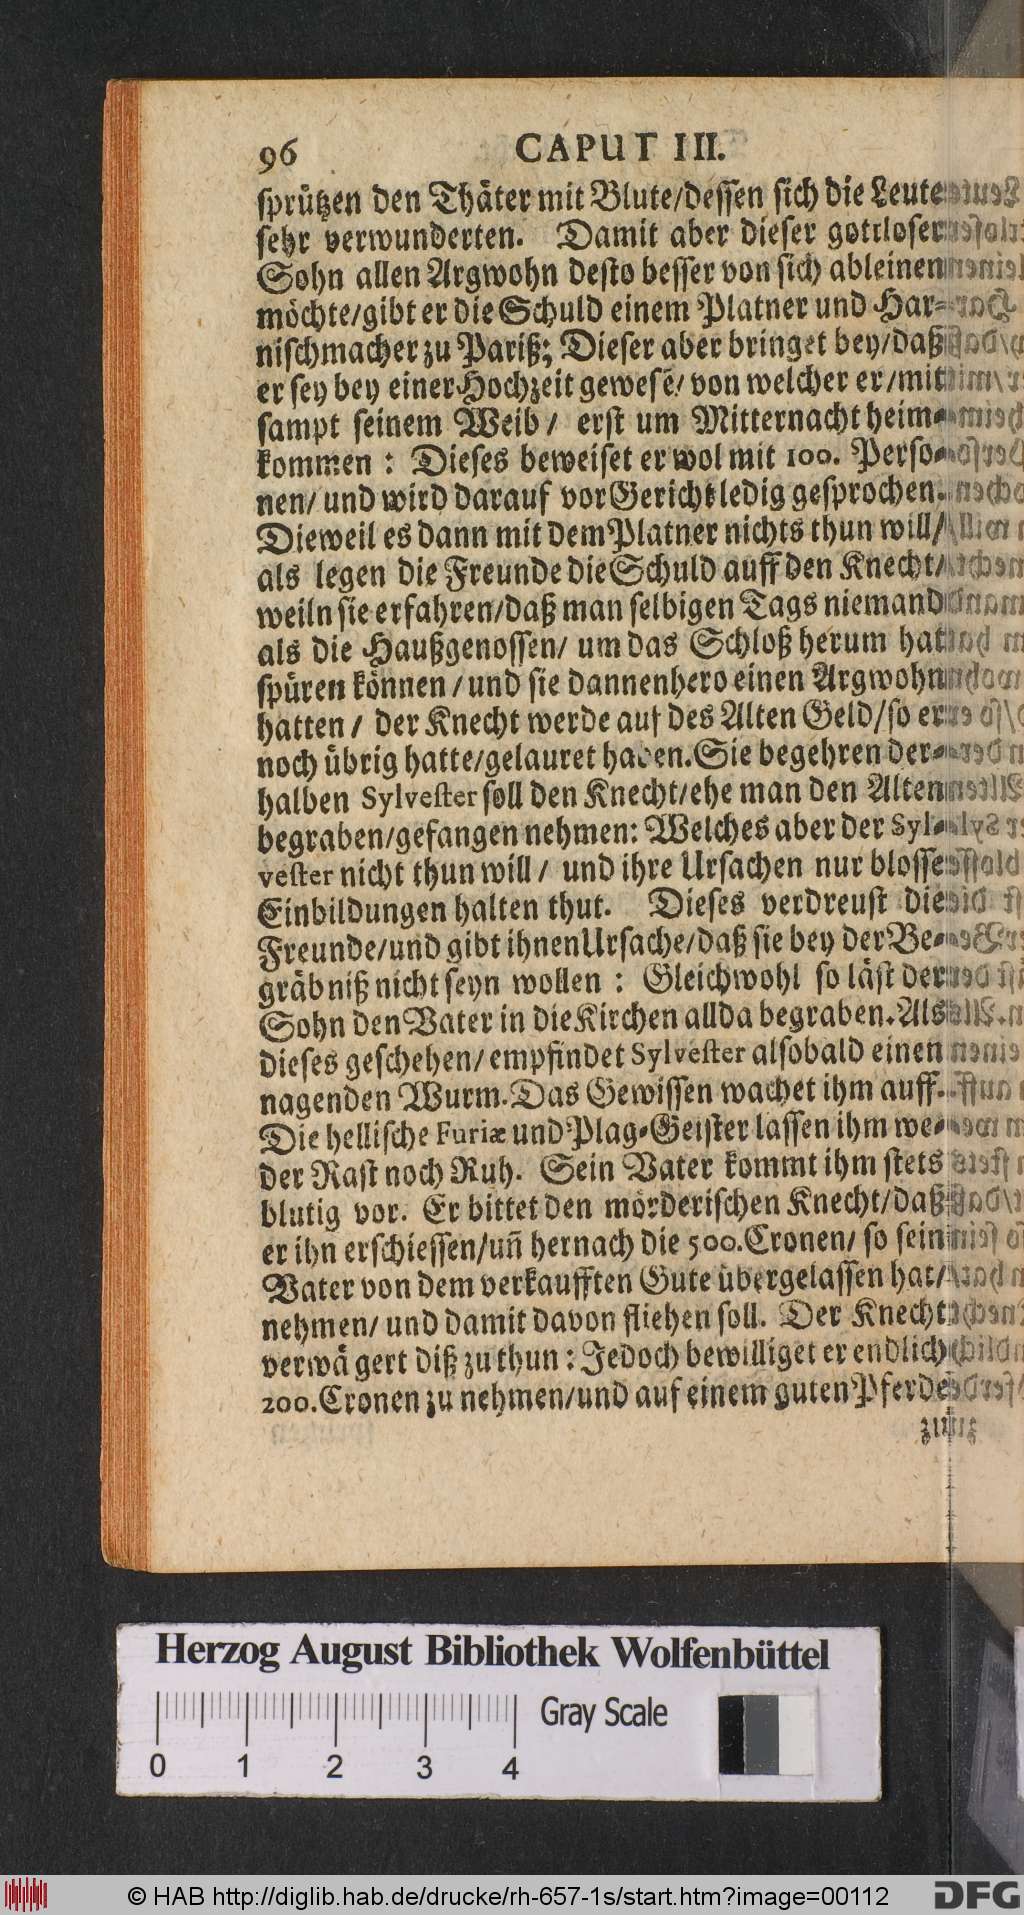 96 CAPUT III.
sprützen den Thäter mit Blute/dessen sich die Leute
sehr verwunderten. Damit aber dieser gottloser
Sohn allen Argwohn desto besser von sich ableinen
möchte/gibt er die Schuld einem Platner und Har-
nischmacher zu Pariß; Dieser aber bringet bey/daß
er sey bey einer Hochzeit gewesẽ/ von welcher er/mit
sampt seinem Weib/ erst um Mitternacht heim-
kommen: Dieses beweiset er wol mit 100. Perso-
nen/ und wird darauf vor Gericht ledig gesprochen.
Dieweil es dann mit dem Platner nichts thun will/
als legen die Freunde die Schuld auff den Knecht/
weiln sie erfahren/daß man selbigen Tags niemand
als die Haußgenossen/ um das Schloß herum hat
spüren können/und sie dannenhero einen Argwohn
hatten/ der Knecht werde auf des Alten Geld/so er
noch übrig hatte/gelauret haben. Sie begehren der-
halben Sylvester soll den Knecht/ehe man den Alten
begraben/gefangen nehmen: Welches aber der Syl-
vester nicht thun will/ und ihre Ursachen nur blosse
Einbildungen halten thut. Dieses verdreust die
Freunde/und gibt ihnen Ursache/daß sie bey der Be-
gräbniß nicht seyn wollen: Gleichwohl so läst der
Sohn den Vater in die Kirchen allda begraben. Als
dieses geschehen/ empfindet Sylvester alsobald einen
nagenden Wurm. Das Gewissen wachet ihm auff.
Die hellische Furiæ und Plag-Geister lassen ihm we-
der Rast noch Ruh. Sein Vater kommt ihm stets
blutig vor. Er bittet den mörderischen Knecht/daß
er ihn erschiessen/uñ hernach die 500. Cronen/ so sein
Vater von dem verkaufften Gute übergelassen hat/
nehmen/ und damit davon fliehen soll. Der Knecht
verwägert diß zu thun: Jedoch bewilliget er endlich
200. Cronen zu nehmen/und auf einem guten Pferde
Herzog August Bibliothek Wolfenbüttel
0 1 2 3 4 Gray Scale
© HAB http://diglib.hab.de/drucke/rh-657-1s/start.htm?image=00112 DFG